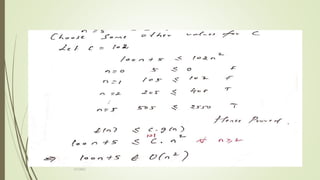 n=5
Choose some other value for C
Let C = 102
100n+5 ≤ 102n²
n=0 5 ≤ 0 F
n=1 105 ≤ 102 F
n=2 205 ≤ 408 T
n=5 505 ≤ 2550 T
Hence Proved.
f(n) ≤ C.g(n)
100n+5 ≤ C.n² if n≥2
⇒ 100n+5 ∈ O(n²)